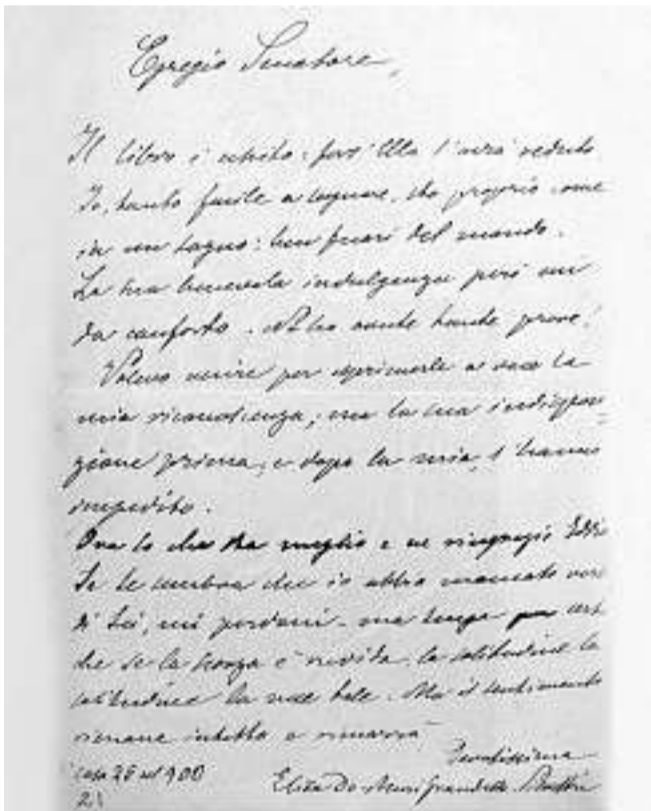 Egregio Senatore,
Il libro è uscito: fors' Ella l'avrà veduto.
Io, tanto facile a sognare, sto proprio come
in un sogno: ben fuori del mondo.
La sua benevola indulgenza però mi
dà conforto. N'ho avute tante prove!
Volevo venire per esprimerle a voce la
mia riconoscenza; ma la sua indispo=
zione prima, e dopo la mia, l'hanno
impedito.
Ora so che sta meglio e ne ringrazio Iddio
Se le sembra che io abbia mancato verso
di Lei, mi perdoni - ma
che se la scorza è ruvida, la solitudine la
solitudine la rese tale. Ma il sentimento
rimane intatto e rimarrà
Devotissima
casa 26 900
Elisa De Muri Grandesso
21